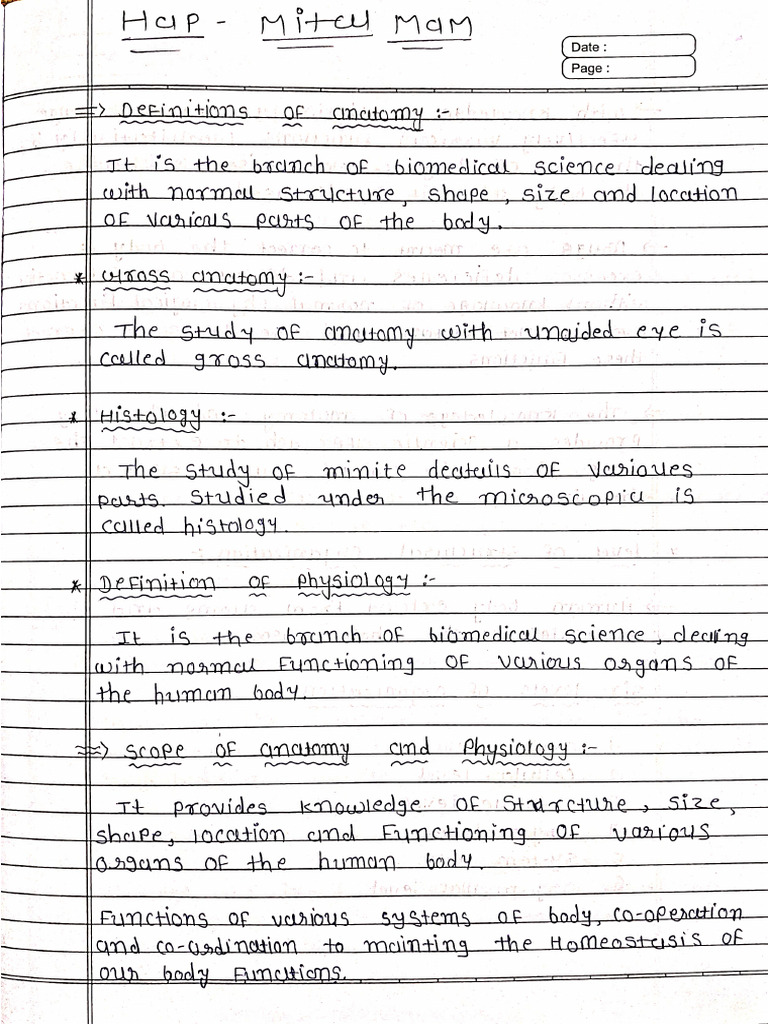 Hap - Mital Mam
Date :
Page :
=> Definitions of anatomy :-
It is the branch of biomedical science dealing
with normal structure, shape, size and location
of various parts of the body.
* Gross anatomy :-
The study of anatomy with unaided eye is
called gross anatomy.
* Histology :-
The study of minite deatails of varioues
parts. studied under the microscopic is
called histology.
* Definition of Physiology :-
It is the branch of biomedical science, dealing
with normal Functioning of various organs of
the human body.
=> Scope of anatomy and Physiology :-
It provides knowledge of structure, size,
shape, location and Functioning of various
organs of the human body.
Functions of various systems of body, co-operation
and co-ordination to mainting the Homeostasis of
our body Functions.